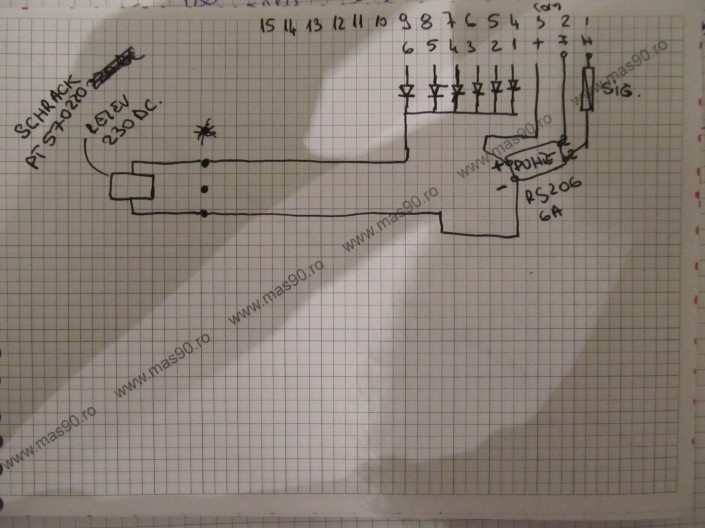 15 14 13 12 11 10 9 8 7 6 5 4 3 2 1
6 5 4 3 2 1 +
SIG.
SCHRACK
PT 570220
RELEU
230 DC.
*
+ PUNTE
-
RS206
6A
www.mas90.ro
www.mas90.ro
www.mas90.ro
www.mas90.ro
www.mas90.ro
www.mas90.ro